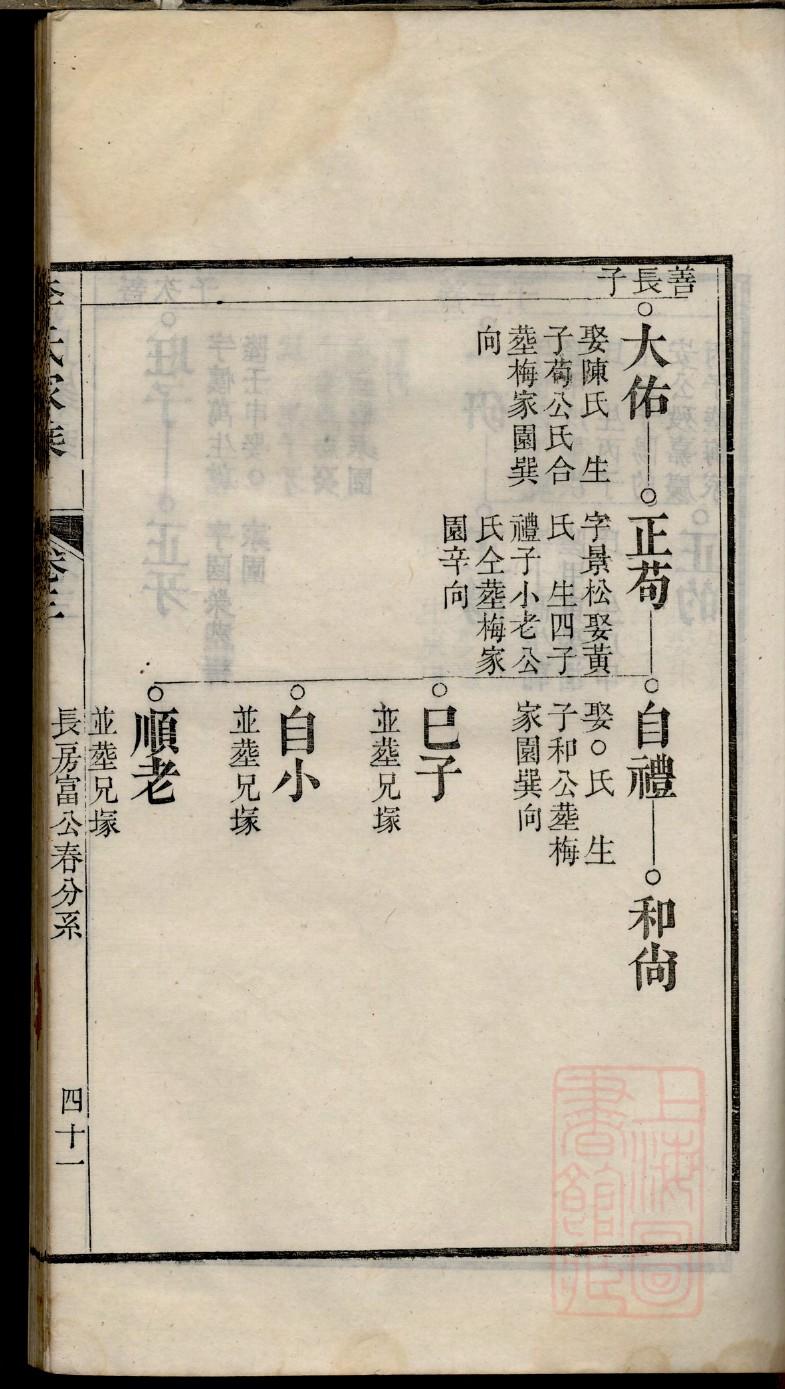 善長子
大佑
娶陳氏　生
子苟公氏合
塟梅家園巽
向
正苟
字景松娶黃
氏　生四子
禮子小老公
氏仝塟梅家
園辛向
自禮
娶○氏　生
子和公塟梅
家園巽向
和尙
巳子
並塟兄塚
自小
並塟兄塚
順老
並塟兄塚
氏家乘
卷三
長房富公春分系
四十一
上海圖書館藏